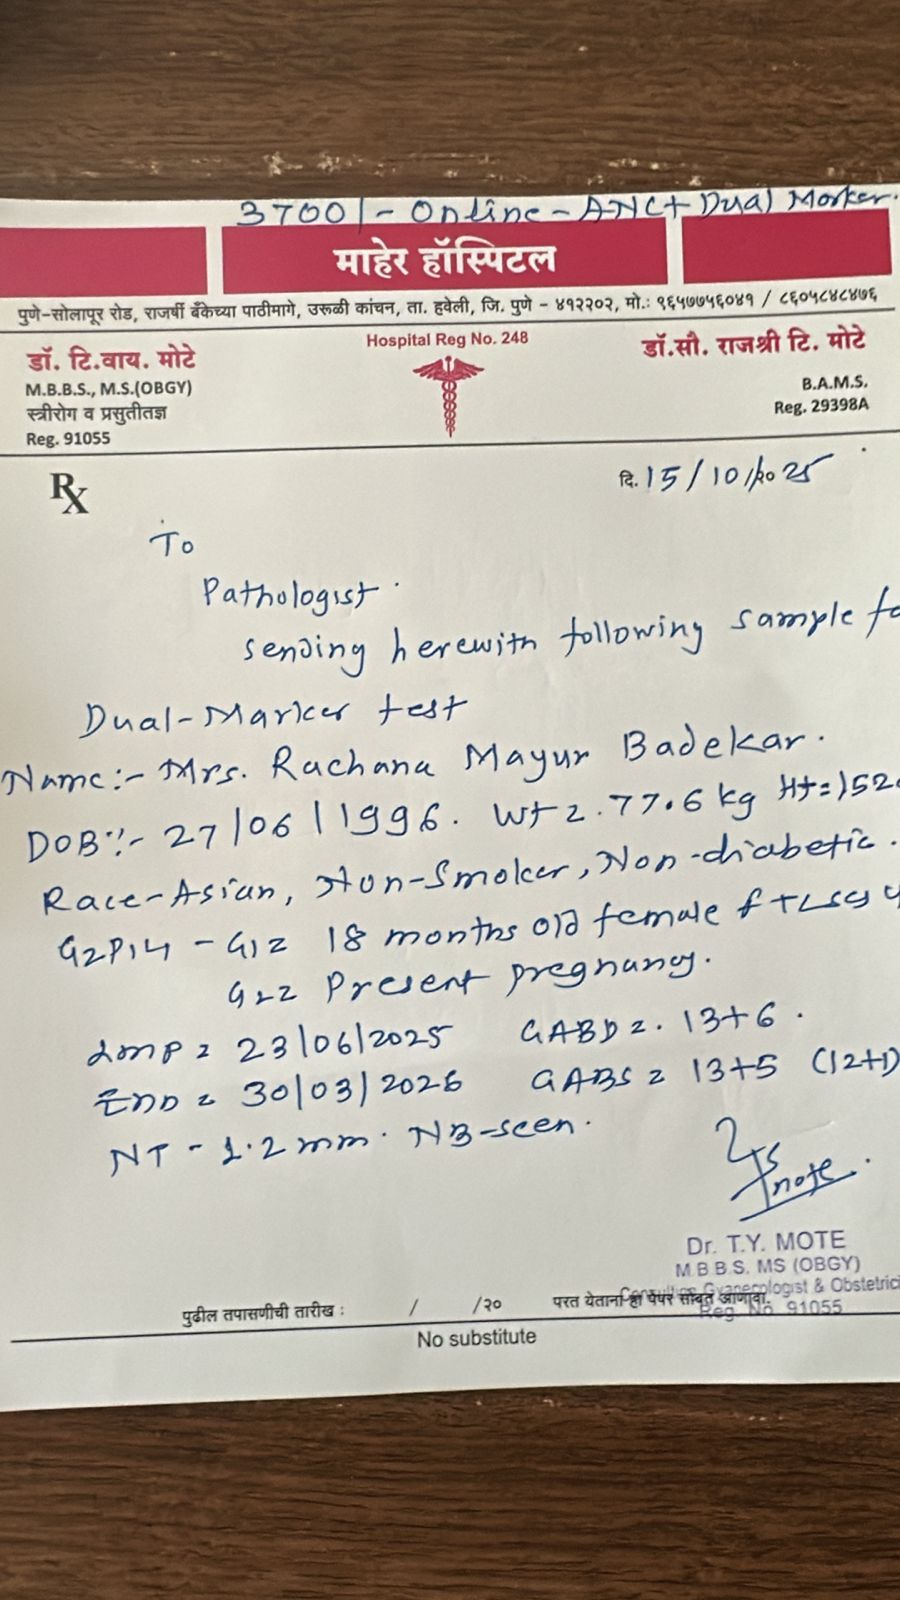 3700/- Online - ANC + Dual Marker.
माहेर हॉस्पिटल
पुणे-सोलापूर रोड, राजर्षी बँकेच्या पाठीमागे, उरूळी कांचन, ता. हवेली, जि. पुणे - ४१२२०२, मो.: ९६५७७५६०४१ / ८६०५८४८४७६
Hospital Reg No. 248
डॉ. टि.वाय. मोटे
M.B.B.S., M.S.(OBGY)
स्त्रीरोग व प्रसुतीतज्ञ
Reg. 91055
डॉ.सौ. राजश्री टि. मोटे
B.A.M.S.
Reg. 29398A
Rx
दि. 15/10/२० 25
To
Pathologist.
sending herewith following sample fo
Dual-Marker test
Name:- Mrs. Rachana Mayur Badekar.
DOB:- 27/06/1996. Wt = 77.6 kg Ht = 152
Race-Asian, Non-Smoker, Non-diabetic.
G2P1L1 - G1 = 18 months old female FTLSCS
G2 = Present pregnancy.
LMP = 23/06/2025 GABD = 13+6.
EDD = 30/03/2026 GABS = 13+5 (12+1)
NT - 1.2 mm. NB-seen.
Dr. T.Y. MOTE
M.B.B.S. MS (OBGY)
Consulting Gyanecologist & Obstetrici
Reg. No. 91055
पुढील तपासणीची तारीख : / /२० परत येताना हा पेपर सोबत आणावा.
No substitute